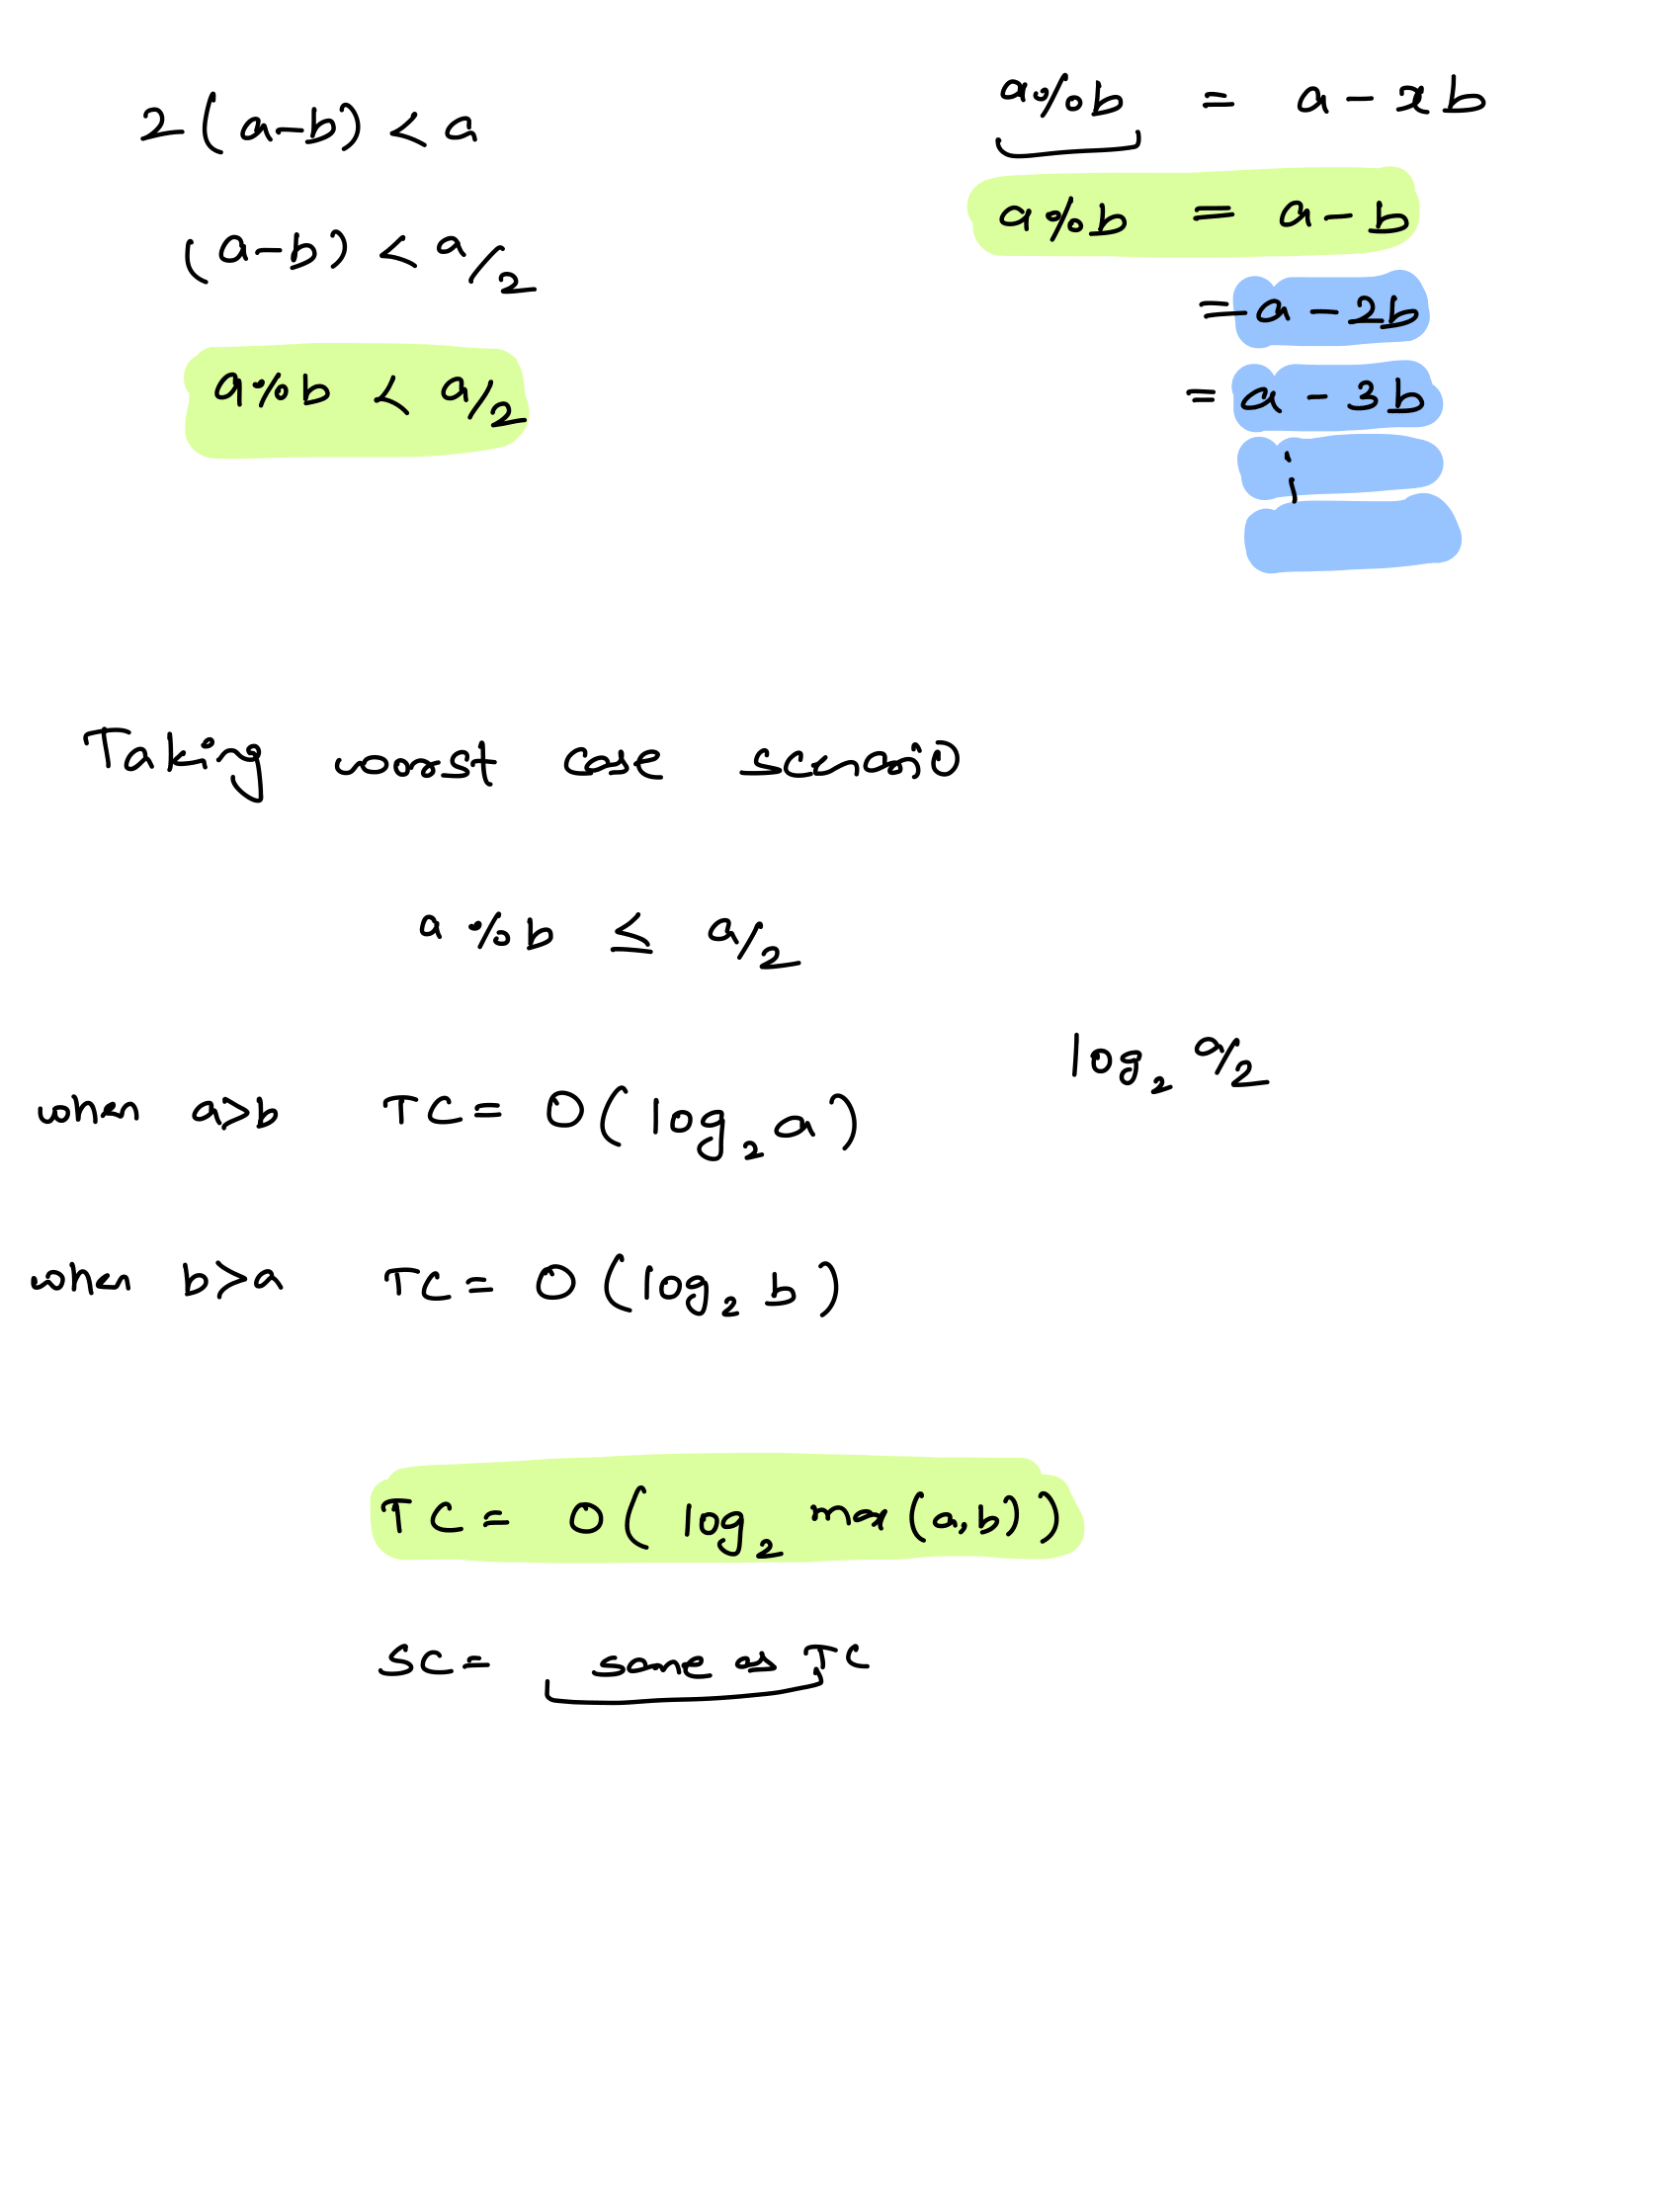 2(a-b) < a
(a-b) < a/2
a%b < a/2
a%b = a - xb
a%b = a - b
= a - 2b
= a - 3b
Taking worst case scenario
a%b ≤ a/2
log₂ a/2
when a>b TC = O(log₂ a)
when b>a TC = O(log₂ b)
TC = O(log₂ max(a,b))
SC = same as TC